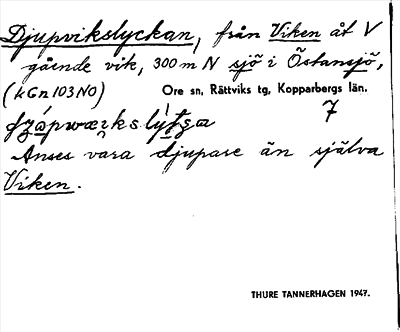 Djupvikslyckan, från Viken åt V
gående vik, 300 m N sjö i Östansjö,
(kGn103NO) Ore sn, Rättviks tg, Kopparbergs län.
7
Anses vara djupare än själva
Viken.
THURE TANNERHAGEN 1947.